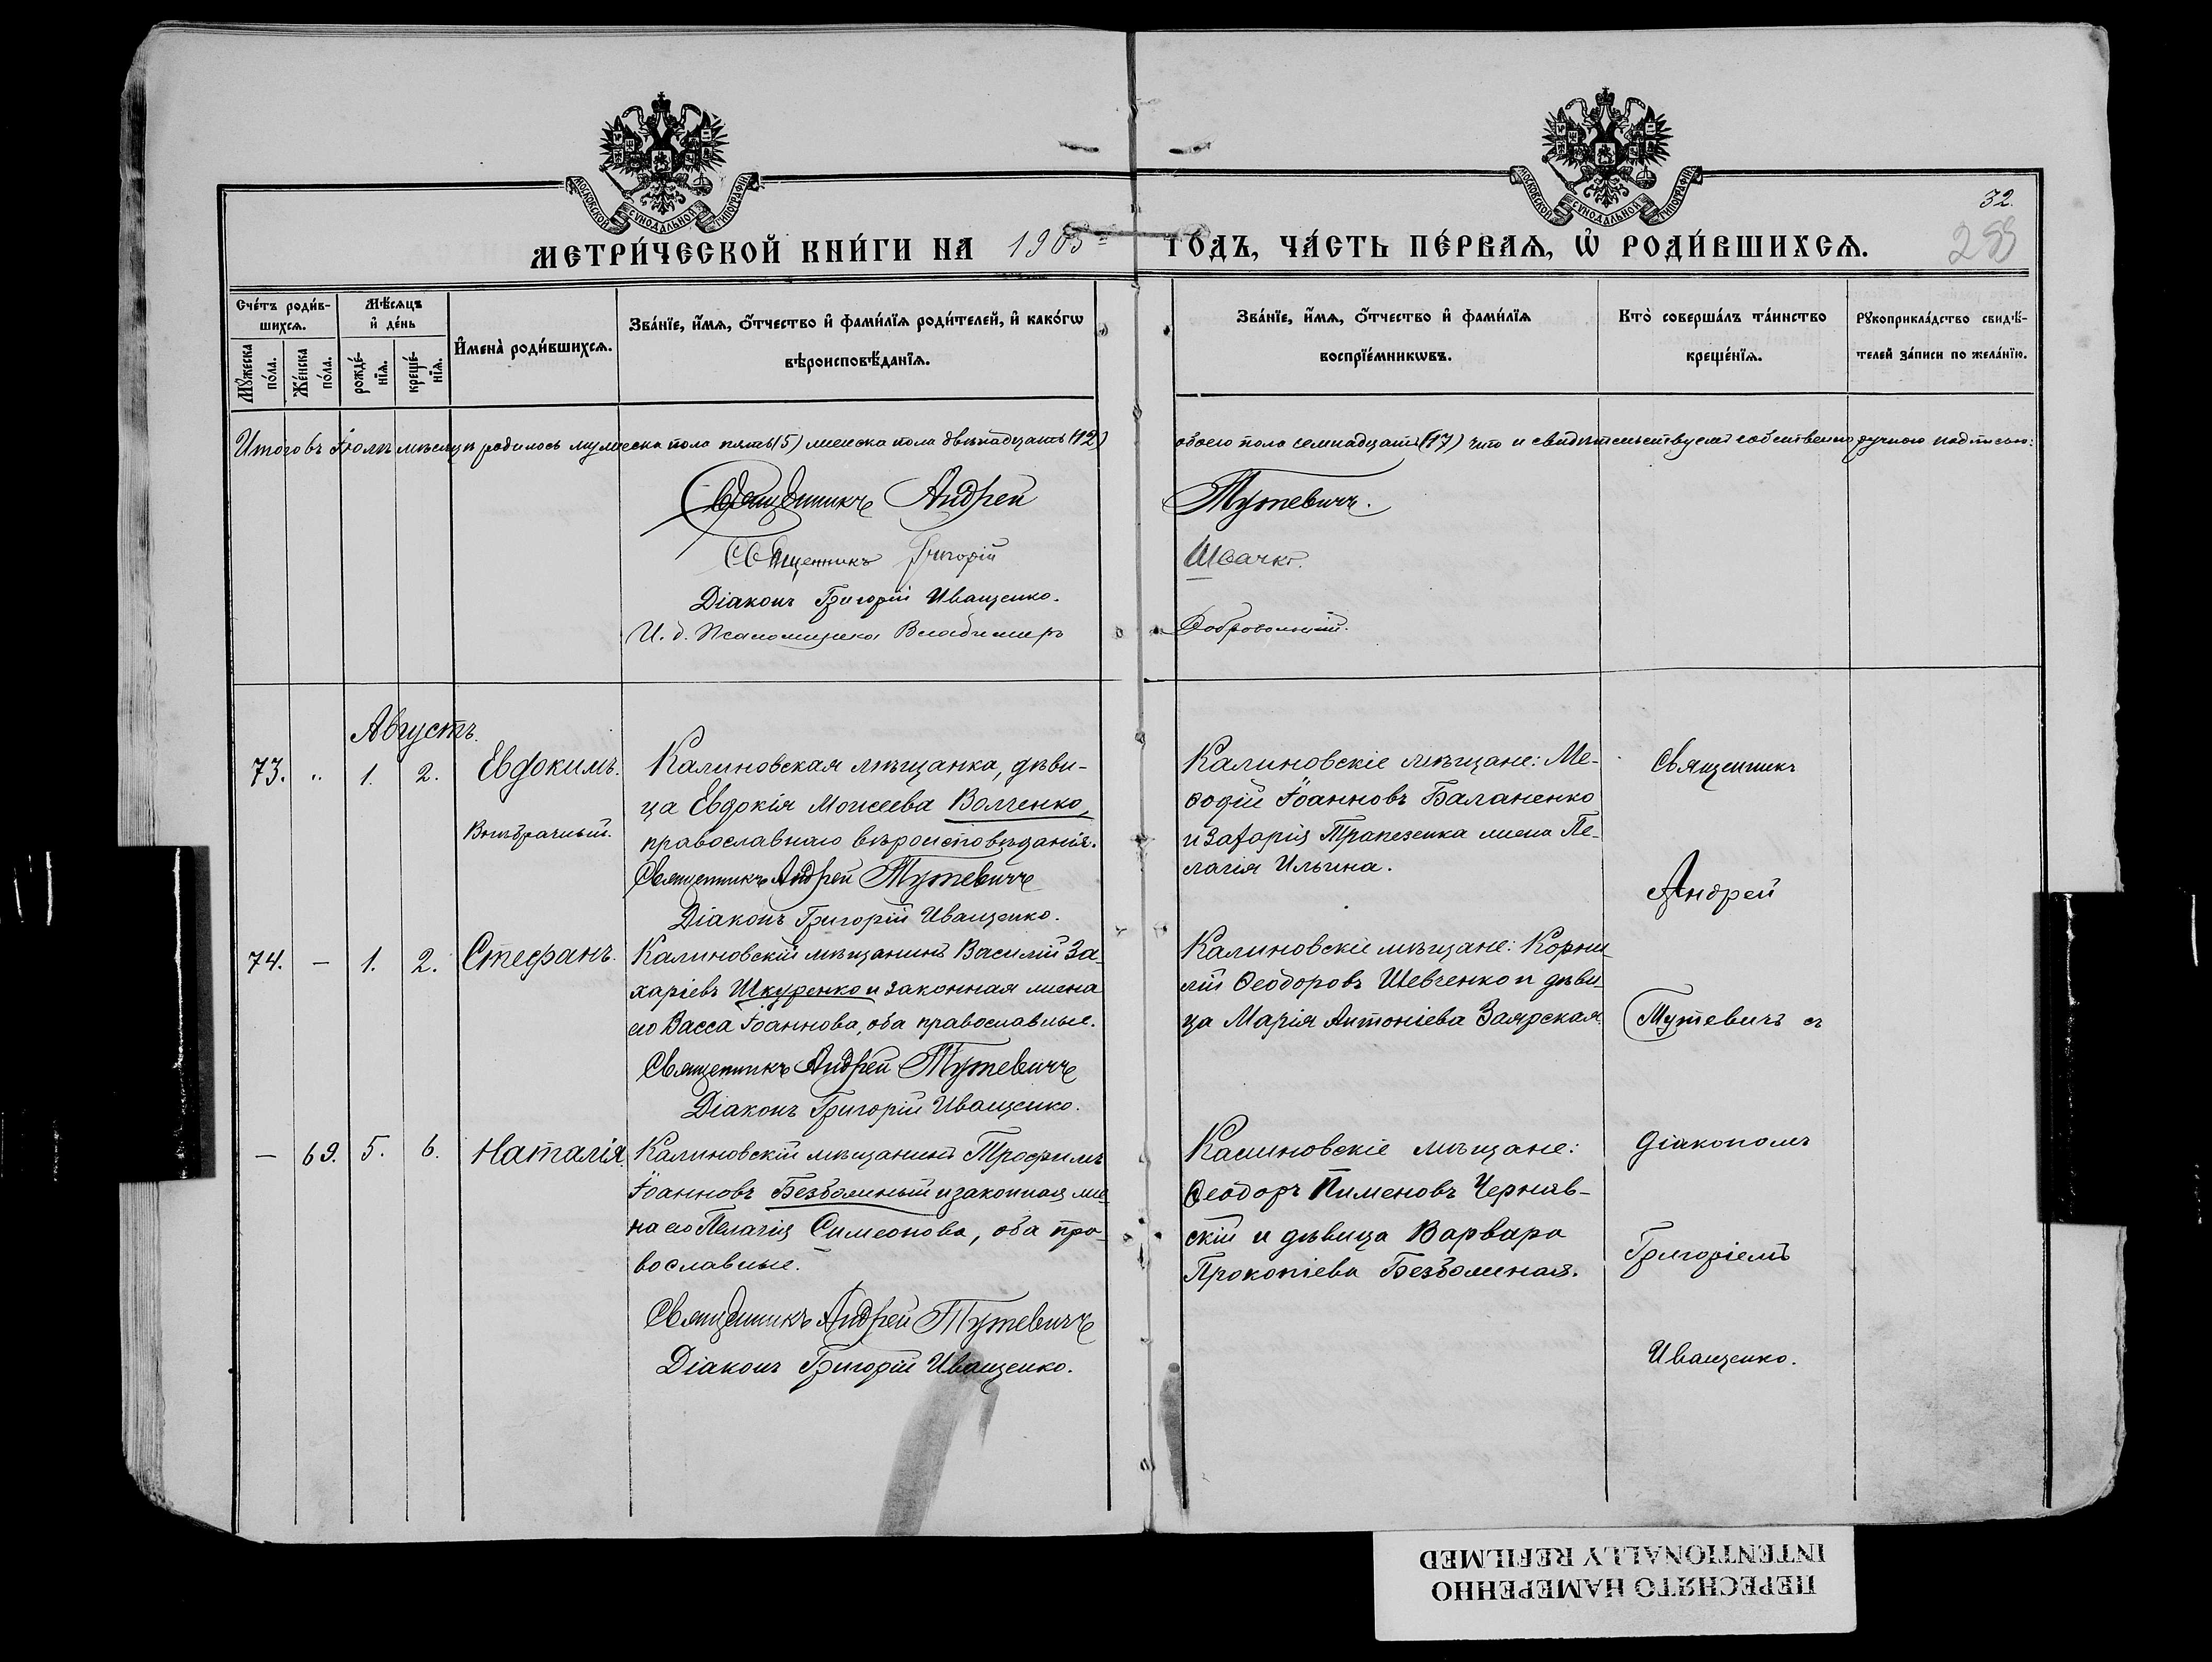 МОСКОВСКОЙ СУНОДАЛЬНОЙ ТИПОГРАФІИ
МОСКОВСКОЙ СУНОДАЛЬНОЙ ТИПОГРАФІИ
32.
МЕТРИ́ЧЕСКОЙ КНИ́ГИ НА 1905 ГОДЪ, ЧА́СТЬ ПЕ́РВАѦ, Ѡ҆ РОДИ́ВШИХСѦ.
Сче́тъ роди́в-
шихсѧ.
Мѣ́сѧцъ
и҆ де́нь
Мꙋ́жеска
по́ла.
Же́нска
по́ла.
рожде́-
нїѧ.
креще́-
нїѧ.
И҆мена̀ роди́вшихсѧ.
Зва́нїе, и҆́мѧ, ѻ҆́тчество и҆ фами́лїѧ роди́телей, и҆ како́гѡ
вѣроисповѣ́данїѧ.
Зва́нїе, и҆́мѧ, ѻ҆́тчество и҆ фами́лїѧ
воспрїе́мникѡвъ.
Кто̀ соверша́лъ та́инство
креще́нїѧ.
Рꙋкоприкла́дство свидѣ́-
телей за́писи по жела́нїю.
Итого въ Іюлѣ мѣсяцѣ родилось мужеска пола пять (5) женска пола двѣнадцать (12) обоего пола семнадцать (17) что и свидѣтельствуемъ собственноручною подписью:
Священникъ Андрей Тутевичъ.
Священникъ Григорій Швачко.
Діаконъ Григорій Иващенко.
И. д. Псаломщика Владимиръ Добровольскій.
Августъ.
73. „ 1. 2. Евдокимъ.
Внѣбрачный.
Калиновская мѣщанка, дѣви-
ца Евдокія Моисеева Волченко,
православнаго вѣроисповѣданія.
Священникъ Андрей Тутевичъ
Діаконъ Григорій Иващенко.
Калиновскіе мѣщане: Ме-
ѳодій Іоанновъ Баланенко
и Захарія Трапезенка жена Пе-
лагія Ильина.
Священникъ
Андрей
74. — 1. 2. Стефанъ.
Калиновскій мѣщанинъ Василій За-
харіевъ Шкуренко и законная жена
его Васса Іоаннова, оба православные.
Священникъ Андрей Тутевичъ
Діаконъ Григорій Иващенко.
Калиновскіе мѣщане: Корни-
лій Ѳеодоровъ Шевченко и дѣви-
ца Марія Антоніева Заярская.
Тутевичъ съ
— 69. 5. 6. Наталія.
Калиновскій мѣщанинъ Трофимъ
Іоанновъ Безбожный и законная же-
на его Пелагія Симеонова, оба пра-
вославные.
Священникъ Андрей Тутевичъ
Діаконъ Григорій Иващенко.
Калиновскіе мѣщане:
Ѳеодоръ Пименовъ Черняв-
скій и дѣвица Варвара
Прокопіева Безбожная.
діакономъ
Григоріемъ
Иващенко.
ПЕРЕСНЯТО НАМЕРЕННО
INTENTIONALLY REFILMED